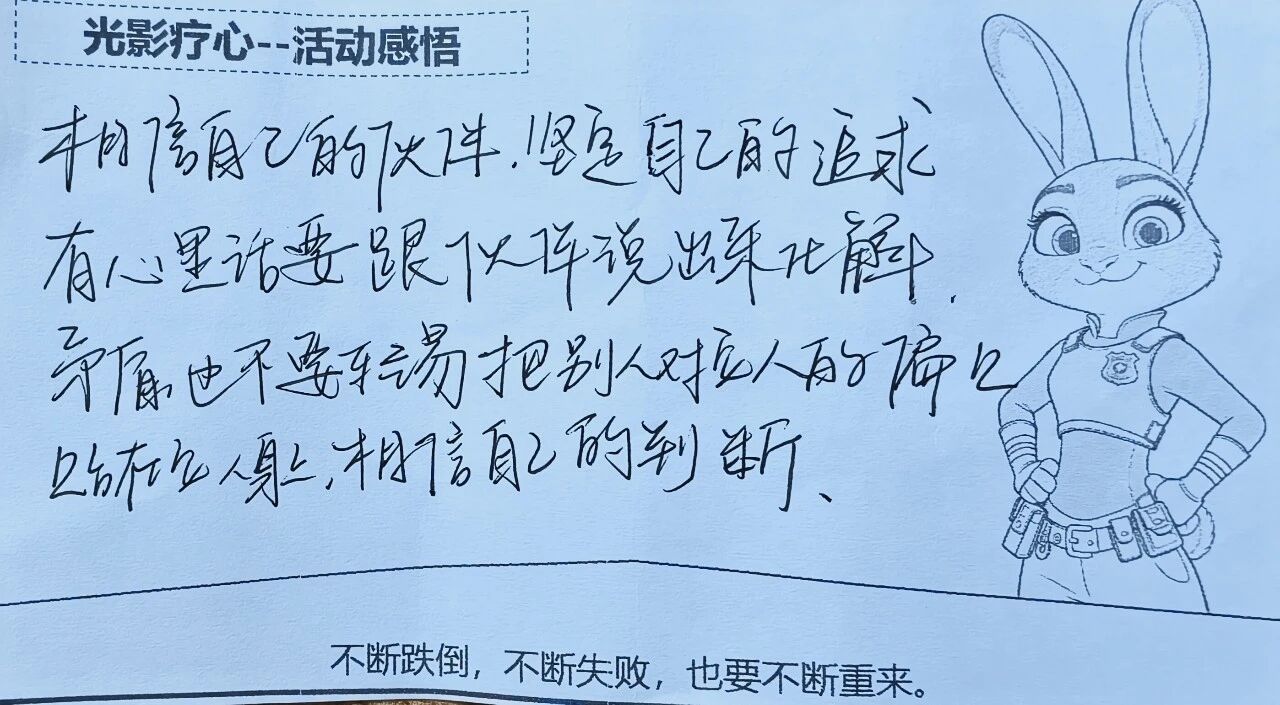 光影疗心--活动感悟
相信自己的伙伴.坚定自己的追求
有心里话要跟伙伴说出来化解.
矛盾也不要轻易把别人对他人的偏见
贴在他人身上.相信自己的判断、
不断跌倒，不断失败，也要不断重来。